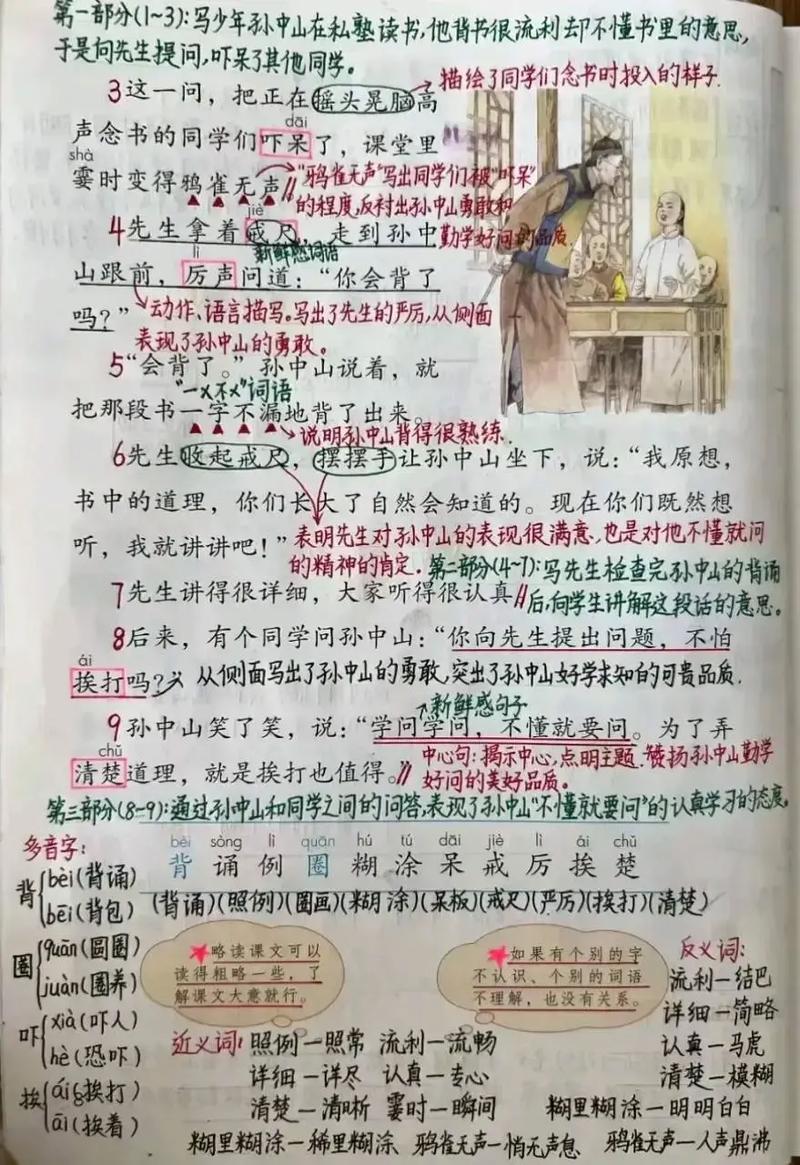 第一部分(1~3):写少年孙中山在私塾读书,他背书很流利却不懂书里的意思,
于是向先生提问,吓呆了其他同学。
描绘了同学们念书时投入的样子.
3这一问，把正在摇头晃脑高
dāi
声念书的同学们吓呆了，课堂里
shà
霎时变得鸦雀无声
"鸦雀无声"写出同学们被"吓呆"
的程度,反衬出孙中山勇敢和
勤学好问的品质.
jiè
4先生拿着戒尺，走到孙中
新鲜感词语
lì
山跟前，厉声问道：“你会背了
吗？”
动作、语言描写。写出了先生的严厉,从侧面
表现了孙中山的勇敢。
5“会背了。”孙中山说着，就
"一x不x"词语
把那段书一字不漏地背了出来。
说明孙中山背得很熟练.
6先生收起戒尺，摆摆手让孙中山坐下，说：“我原想，
书中的道理，你们长大了自然会知道的。现在你们既然想
听，我就讲讲吧！”
表明先生对孙中山的表现很满意,也是对他不懂就问
的精神的肯定.
第二部分(4~7):写先生检查完孙中山的背诵
后,向学生讲解这段话的意思。
7先生讲得很详细，大家听得很认真
8后来，有个同学问孙中山：“你向先生提出问题，不怕
ái
挨打吗？”
从侧面写出了孙中山的勇敢,突出了孙中山好学求知的可贵品质.
新鲜感句子
9孙中山笑了笑，说：“学问学问，不懂就要问。为了弄
chǔ
清楚道理，就是挨打也值得。
中心句:揭示中心,点明主题.赞扬孙中山勤学
好问的美好品质。
第三部分(8-9):通过孙中山和同学之间的问答,表现了孙中山"不懂就要问"的认真学习的态度。
bèi sòng lì quān hú tú dāi jiè lì ái chǔ
背 诵 例 圈 糊 涂 呆 戒 厉 挨 楚
(背诵)(照例)(圈画)(糊涂)(呆板)(戒尺)(严厉)(挨打)(清楚)
多音字:
背
bèi(背诵)
bēi(背包)
圈
quān(圆圈)
juàn(圈养)
吓
xià(吓人)
hè(恐吓)
挨
ái(挨打)
āi(挨着)
略读课文可以
读得粗略一些，了
解课文大意就行。
如果有个别的字
不认识、个别的词语
不理解，也没有关系。
反义词:
流利—结巴
详细—简略
认真—马虎
清楚—模糊
糊里糊涂—明明白白
鸦雀无声—人声鼎沸
近义词:照例—照常 流利—流畅
详细—详尽 认真—专心
清楚—清晰 霎时—瞬间
糊里糊涂—稀里糊涂 鸦雀无声—悄无声息